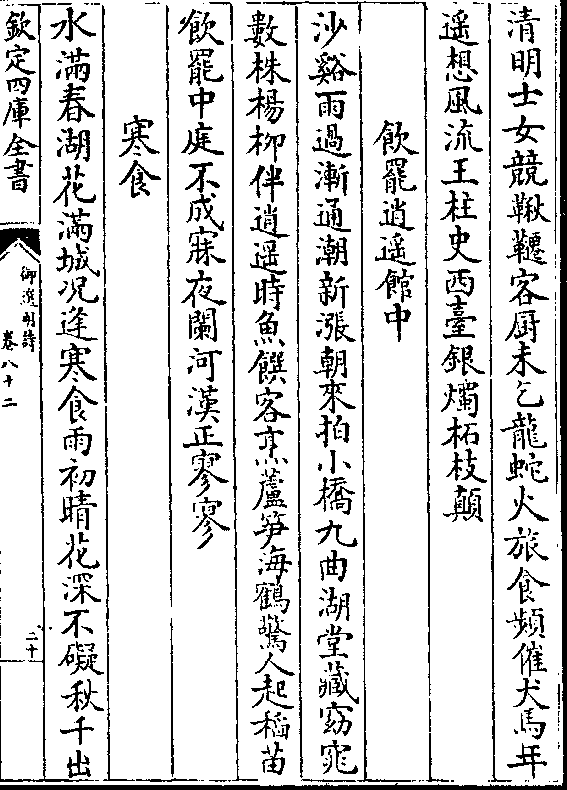 清明士女競鞦韆客厨未乞龍蛇火旅食頻催犬馬年
遥想風流王柱史西臺銀燭柘枝顛
飲罷逍遥館中
沙谿雨過漸通潮新漲朝來拍小橋九曲湖堂藏窈窕
數株楊柳伴逍遥時魚饌客烹蘆笋海鶴驚人起稻苗
飲罷中庭不成寐夜闌河漢正寥寥
寒食
水滿春湖花滿城况逢寒食雨初晴花深不礙秋千出
欽定四庫全書
御選明詩
卷八十二
二十